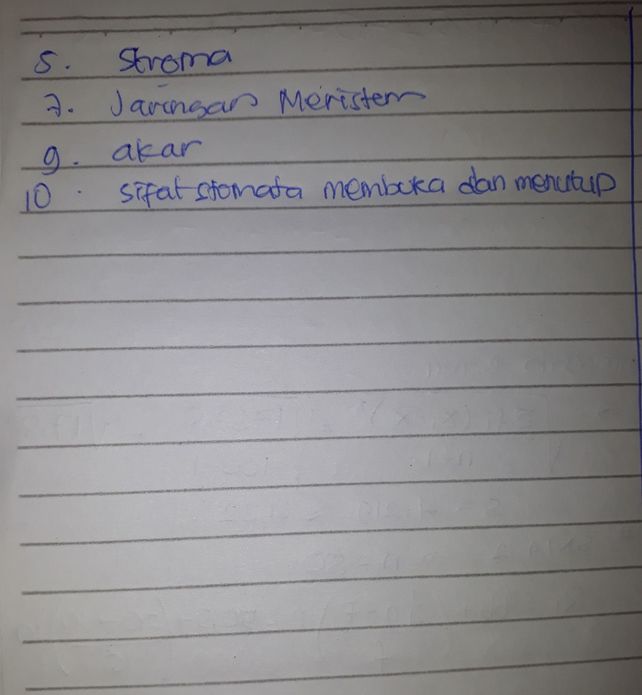 5. Stroma
7. Jaringan Meristem
9. akar
10. sifat stomata membuka dan menutup